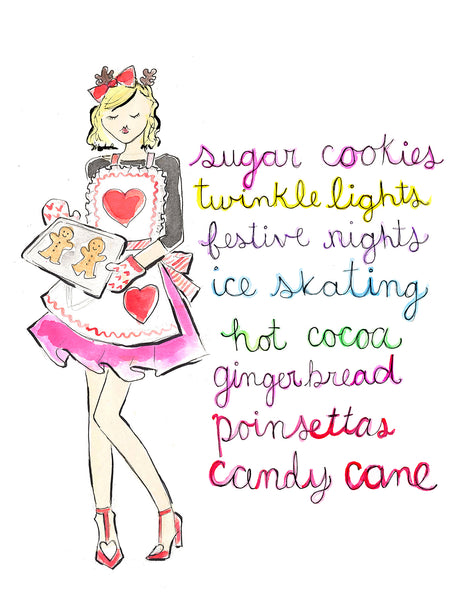 sugar cookies
twinkle lights
festive nights
ice skating
hot cocoa
gingerbread
poinsettas
candy cane